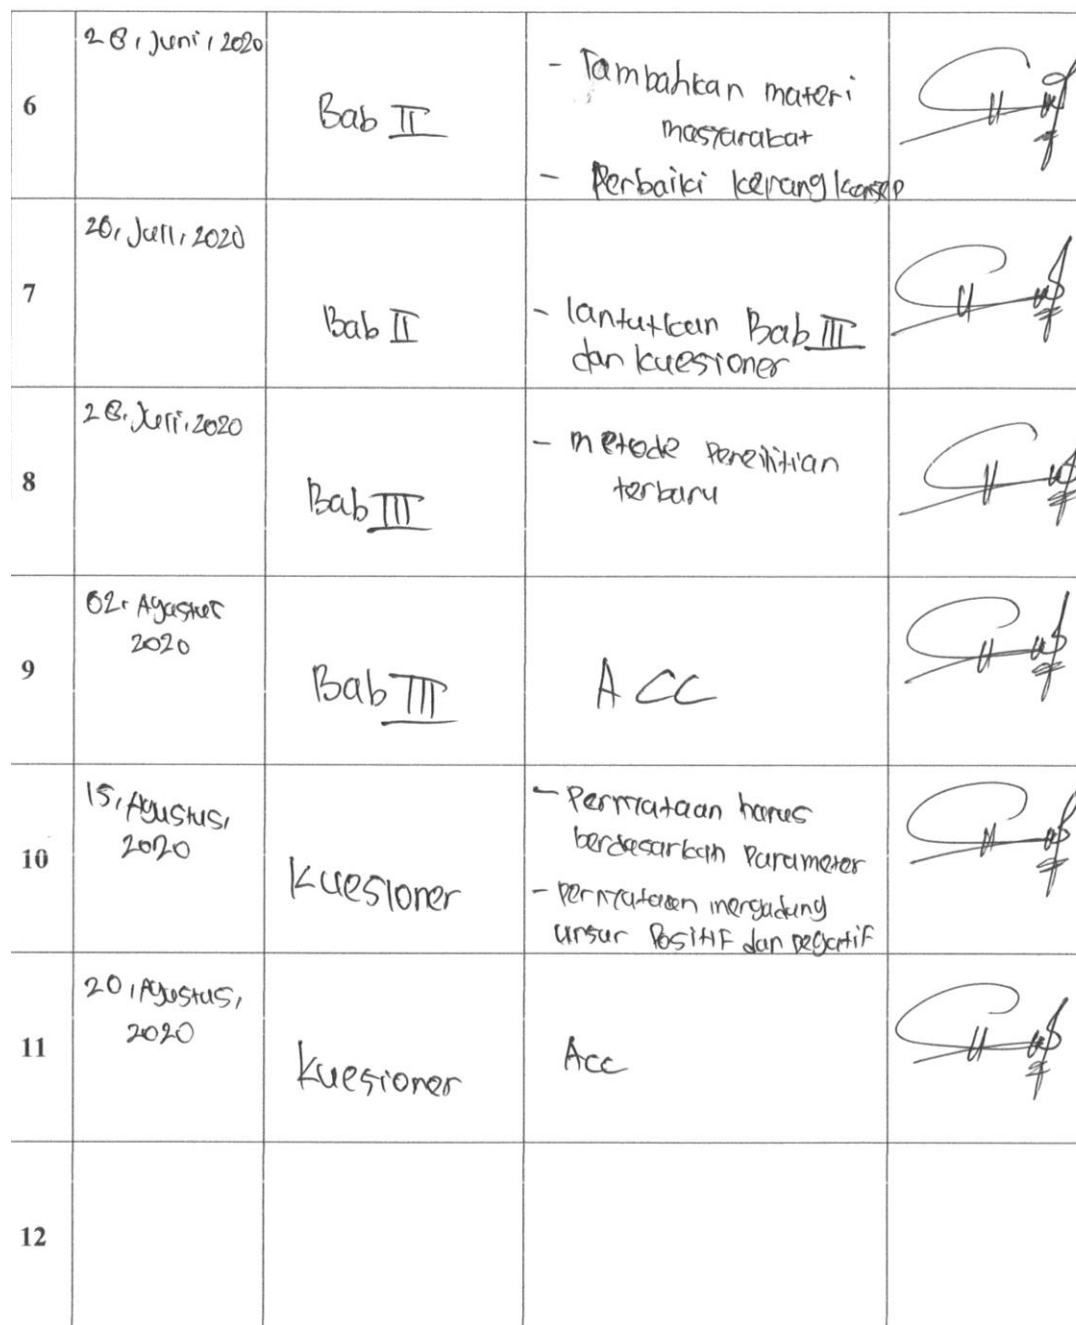 6
28, Juni, 2020
Bab II
- Tambahkan materi
masyarakat
- Perbaiki kerangk konsep
7
20, Juli, 2020
Bab II
- lantutkan Bab III
dan kuesioner
8
28, Juli, 2020
Bab III
- metode Peneilitian
terbaru
9
02, Agustus
2020
Bab III
ACC
10
15, Agustus,
2020
Kuesioner
- Pernyataan harus
berdasarkan Parameter
- Pernyataaen mengadung
unsur Positif dan negatif
11
20, Agustus,
2020
Kuesioner
Acc
12